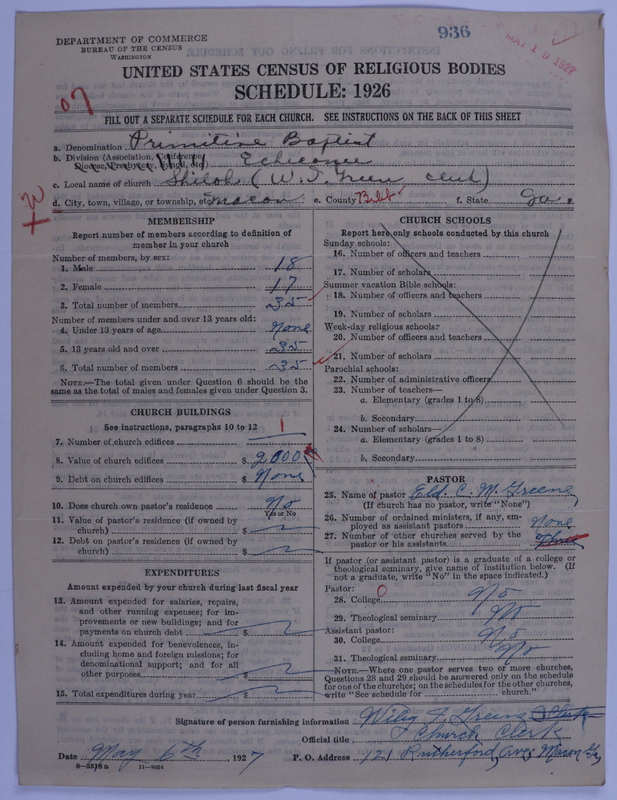 DEPARTMENT OF COMMERCE
BUREAU OF THE CENSUS
WASHINGTON
936
MAY 19 1927
UNITED STATES CENSUS OF RELIGIOUS BODIES
SCHEDULE: 1926
07
FILL OUT A SEPARATE SCHEDULE FOR EACH CHURCH. SEE INSTRUCTIONS ON THE BACK OF THIS SHEET
a. Denomination Primitive Baptist
b. Division (Association, Conference, Diocese, Presbytery, Synod, etc.) Echeconnee
c. Local name of church Shiloh (W. F. Green clerk)
d. City, town, village, or township, etc. Macon e. County Bibb f. State Ga.
MEMBERSHIP
Report number of members according to definition of
member in your church
Number of members, by sex:
1. Male 18
2. Female 17
3. Total number of members 35
Number of members under and over 13 years old:
4. Under 13 years of age None
5. 13 years old and over 35
6. Total number of members 35
NOTE.—The total given under Question 6 should be the
same as the total of males and females given under Question 3.
CHURCH BUILDINGS
See instructions, paragraphs 10 to 12
7. Number of church edifices 1
8. Value of church edifices $ 2000
9. Debt on church edifices $ None
10. Does church own pastor's residence No
Yes or No
11. Value of pastor's residence (if owned by
church) $
12. Debt on pastor's residence (if owned by
church) $
EXPENDITURES
Amount expended by your church during last fiscal year
13. Amount expended for salaries, repairs,
and other running expenses; for im-
provements or new buildings; and for
payments on church debt $
14. Amount expended for benevolences, in-
cluding home and foreign missions; for
denominational support; and for all
other purposes $
15. Total expenditures during year $
CHURCH SCHOOLS
Report here only schools conducted by this church
Sunday schools:
16. Number of officers and teachers
17. Number of scholars
Summer vacation Bible schools:
18. Number of officers and teachers
19. Number of scholars
Week-day religious schools:
20. Number of officers and teachers
21. Number of scholars
Parochial schools:
22. Number of administrative officers
23. Number of teachers—
a. Elementary (grades 1 to 8)
b. Secondary
24. Number of scholars—
a. Elementary (grades 1 to 8)
b. Secondary
PASTOR
25. Name of pastor Eld. C. M. Greene
(If church has no pastor, write "None")
26. Number of ordained ministers, if any, em-
ployed as assistant pastors None
27. Number of other churches served by the
pastor or his assistants Three
If pastor (or assistant pastor) is a graduate of a college or
theological seminary, give name of institution below. (If
not a graduate, write "No" in the space indicated.)
Pastor: 0
28. College No
29. Theological seminary No
Assistant pastor:
30. College No
31. Theological seminary No
NOTE.—Where one pastor serves two or more churches,
Questions 28 and 29 should be answered only on the schedule
for one of the churches; on the schedules for the other churches,
write "See schedule for church."
Signature of person furnishing information Wiley F. Greene
Official title Church Clerk
Date May 6th, 1927 P. O. Address 121 Rutherford Ave, Macon Ga
8-5518 a 11-9054